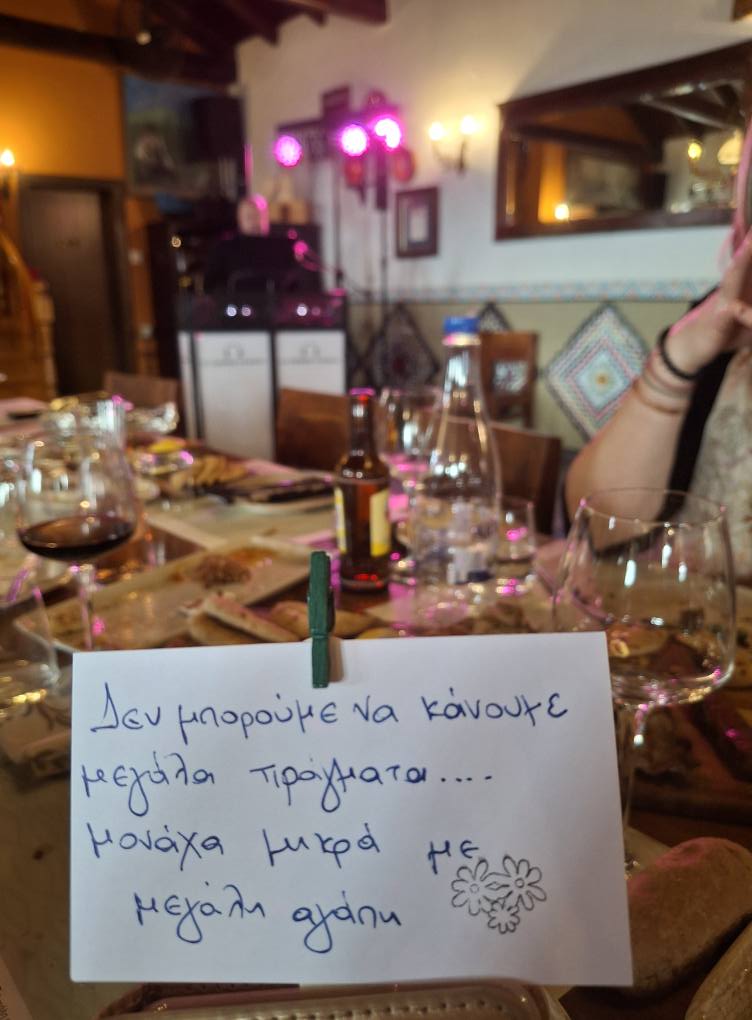 Δεν μπορούμε να κάνουμε
μεγάλα πράγματα....
μονάχα μικρά με
μεγάλη αγάπη